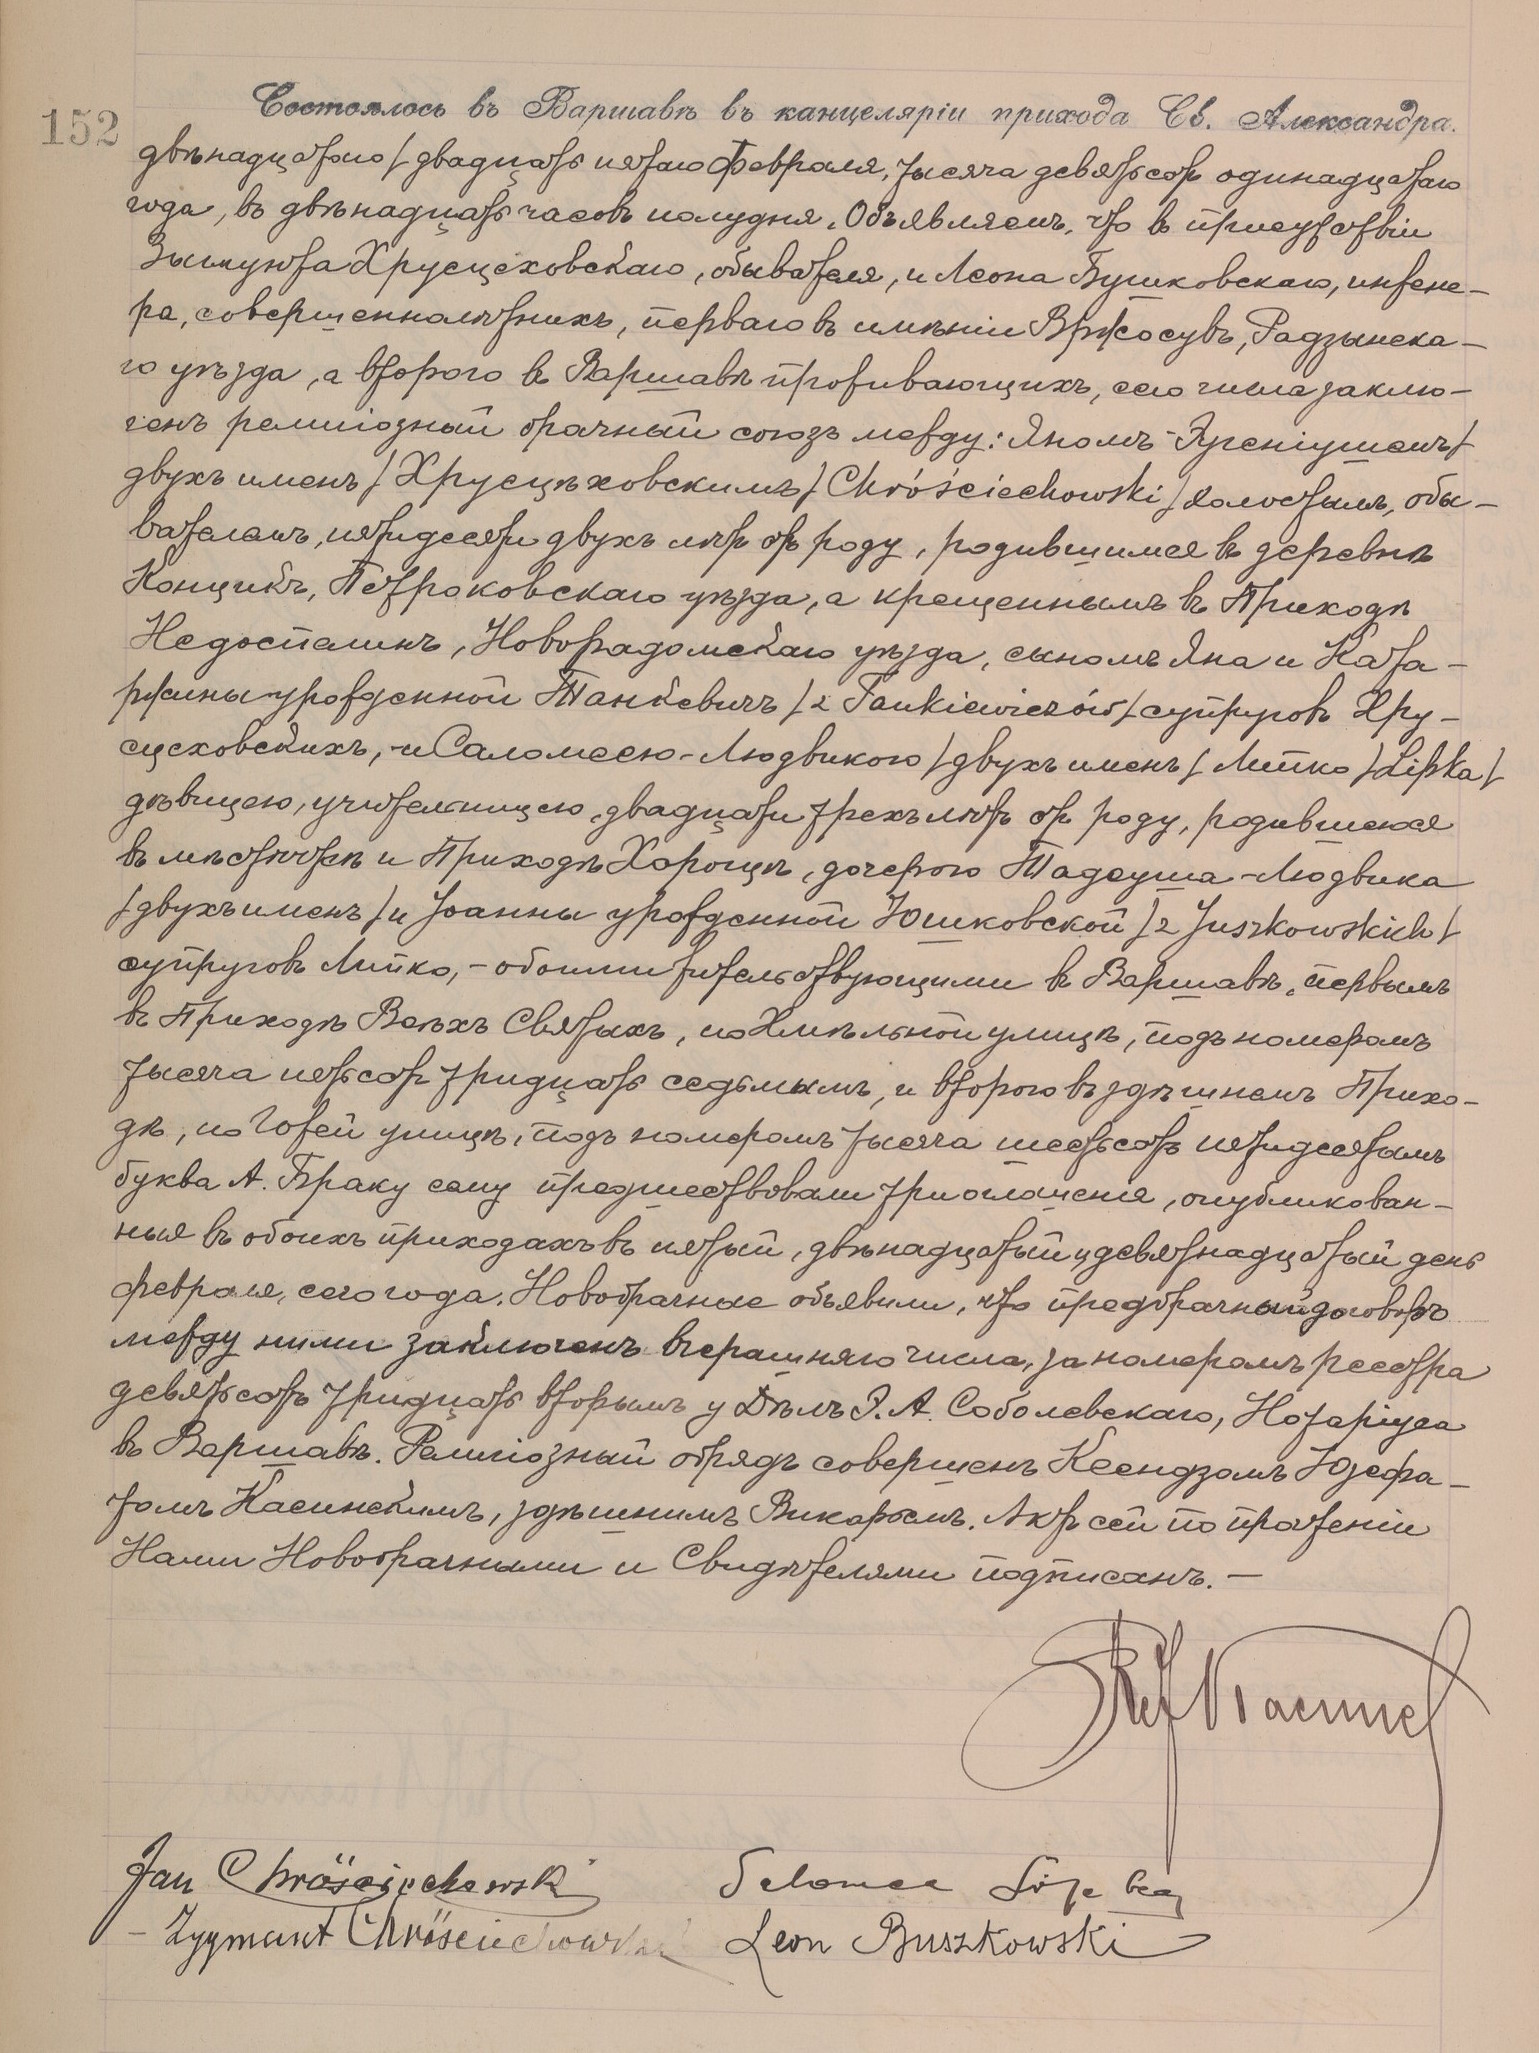 152
Состоялось въ Варшавѣ въ канцеляріи прихода Св. Александра.
двѣнадцатаго / двадцать пятаго Февраля, тысяча девятьсотъ одинадцатаго
года, въ двѣнадцать часовъ полудня. Объявляемъ, что въ присутствіи
Зыгмунта Хрусцеховскаго, обывателя, и Леона Бушковскаго, инжене-
ра, совершеннолѣтнихъ, перваго въ имѣніи Вржосувъ, Радзынска-
го уѣзда, а второго въ Варшавѣ проживающихъ, сего числа заклю-
ченъ религіозный брачный союзъ между: Яномъ-Эугеніушемъ /
двухъ именъ / Хрусцѣховскимъ / Chróściechowski / холостымъ, обы-
вателемъ, пятидесяти двухъ лѣтъ отъ роду, родившимся въ деревнѣ
Концикъ, Петроковскаго уѣзда, а крещеннымъ въ Приходѣ
Недоспелинъ, Новорадомскаго уѣзда, сыномъ Яна и Ката-
ржины урожденной Танкевичъ / z Tankiewiczów / супруговъ Хру-
сцеховскихъ, - и Саломеею-Людвикою / двухъ именъ / Липко / Lipka /
дѣвицею, учительницею, двадцати трехъ лѣтъ отъ роду, родившеюся
въ мѣстечкѣ и Приходѣ Хорощѣ, дочерью Тадеуша-Людвика
/ двухъ именъ / и Іоанны урожденной Юшковской / z Juszkowskich /
супруговъ Липко, - обоими жительствующими въ Варшавѣ, первымъ
въ Приходѣ Всѣхъ Святыхъ, по Хмѣльной улицѣ, подъ номеромъ
тысяча пятьсотъ тридцать седьмымъ, и второго въ здѣшнемъ Прихо-
дѣ, по Гожей улицѣ, подъ номеромъ тысяча шестьсотъ пятидесятымъ
буква А. Браку сему предшествовали три оглашенія, опубликован-
ныя въ обоихъ приходахъ въ пятый, двѣнадцатый и девятнадцатый день
февраля, сего года. Новобрачные объявили, что предбрачный договоръ
между ними заключенъ вчерашняго числа, за номеромъ реестра
девятьсотъ тридцать вторымъ у Дѣлъ Э. А. Соболевскаго, Нотаріуса
въ Варшавѣ. Религіозный обрядъ совершенъ Ксендзомъ Юзефа-
томъ Касинскимъ, здѣшнимъ Викаріемъ. Актъ сей по прочтеніи
Нами Новобрачными и Свидѣтелями подписанъ. -
Jan Chróściechowski
Salomea
Zygmunt Chróściechowski
Leon Buszkowski